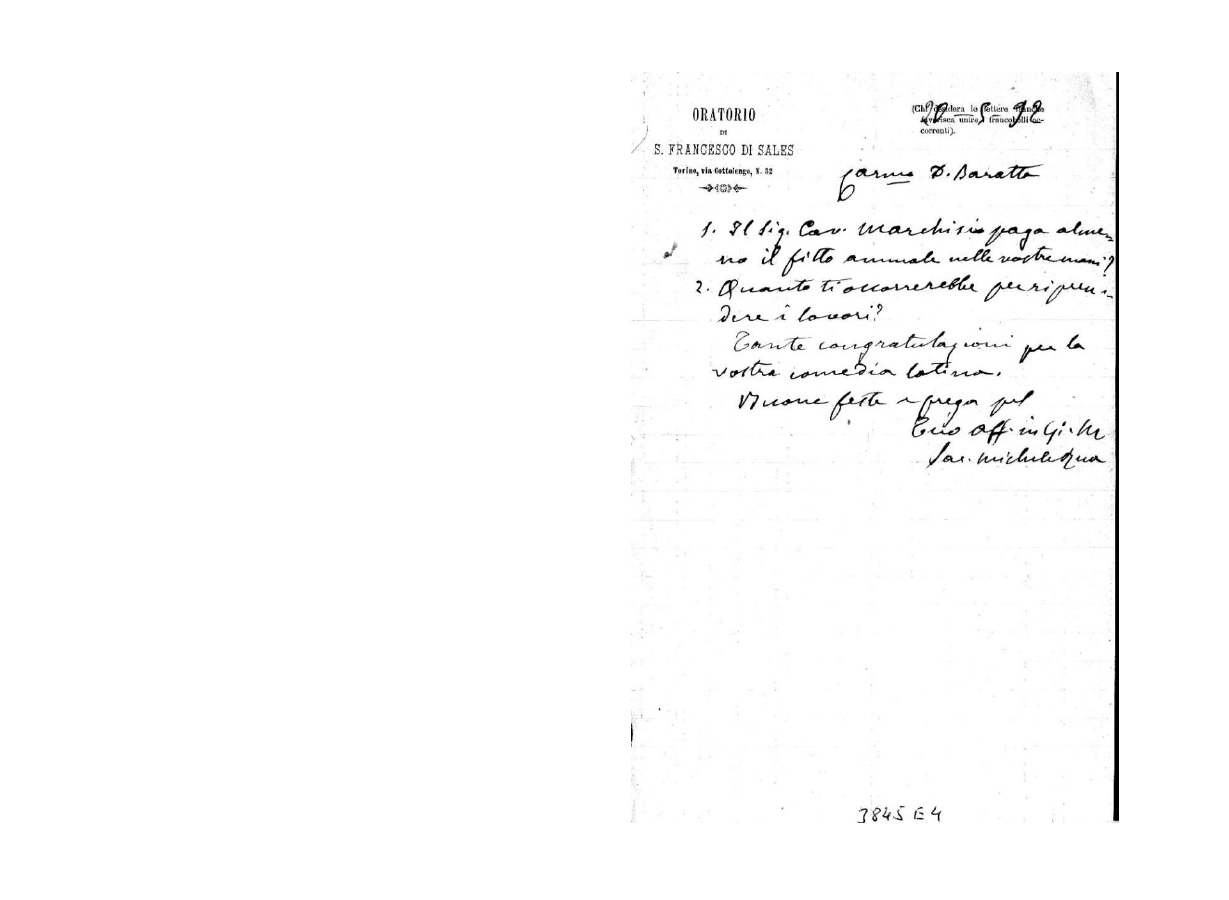 ORATORIO
DI
S. FRANCESCO DI SALES
Torino, via Cottolengo, N. 32
(Chi desidera le lettere franche
favorisca unire i francobolli oc-
correnti).
Car.mo D. Baratta
1. Il Sig. Cav. Marchisio paga alme-
no il fitto annuale nelle vostre mani?
2. Quanto ti occorrerebbe per ripren-
dere i lavori?
Tante congratulazioni per la
vostra comedia latina.
Buone feste e prega pel
Tuo aff. in G. M
Sac. Michele Rua
3845 E 4